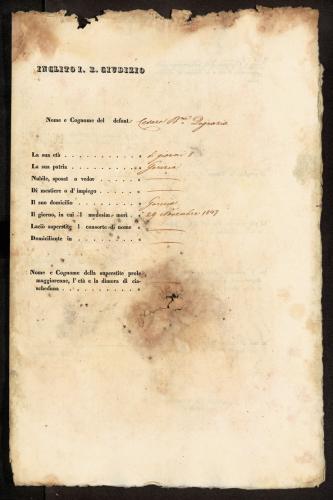 INCLITO I. R. GIUDIZIO
Nome e Cognome del defont. Cesare Degrazia
La sua età . . . . . . . . . . . . . di giorni 8
La sua patria . . . . . . . . . . . Gorizia
Nubile, sposat o vedov . . . . . . .
Di mestiere o d' impiego . . . . . .
Il suo domicilio . . . . . . . . . . Gorizia
Il giorno, in cui l medesim morì . . 29 Novembre 1847
Lasciò superstite l consorte di nome . .
Domiciliante in . . . . . . . . . . .
Nome e Cognome della superstite prole
maggiorenne, l' età e la dimora di cia-
scheduna . . . . . . . . . . .